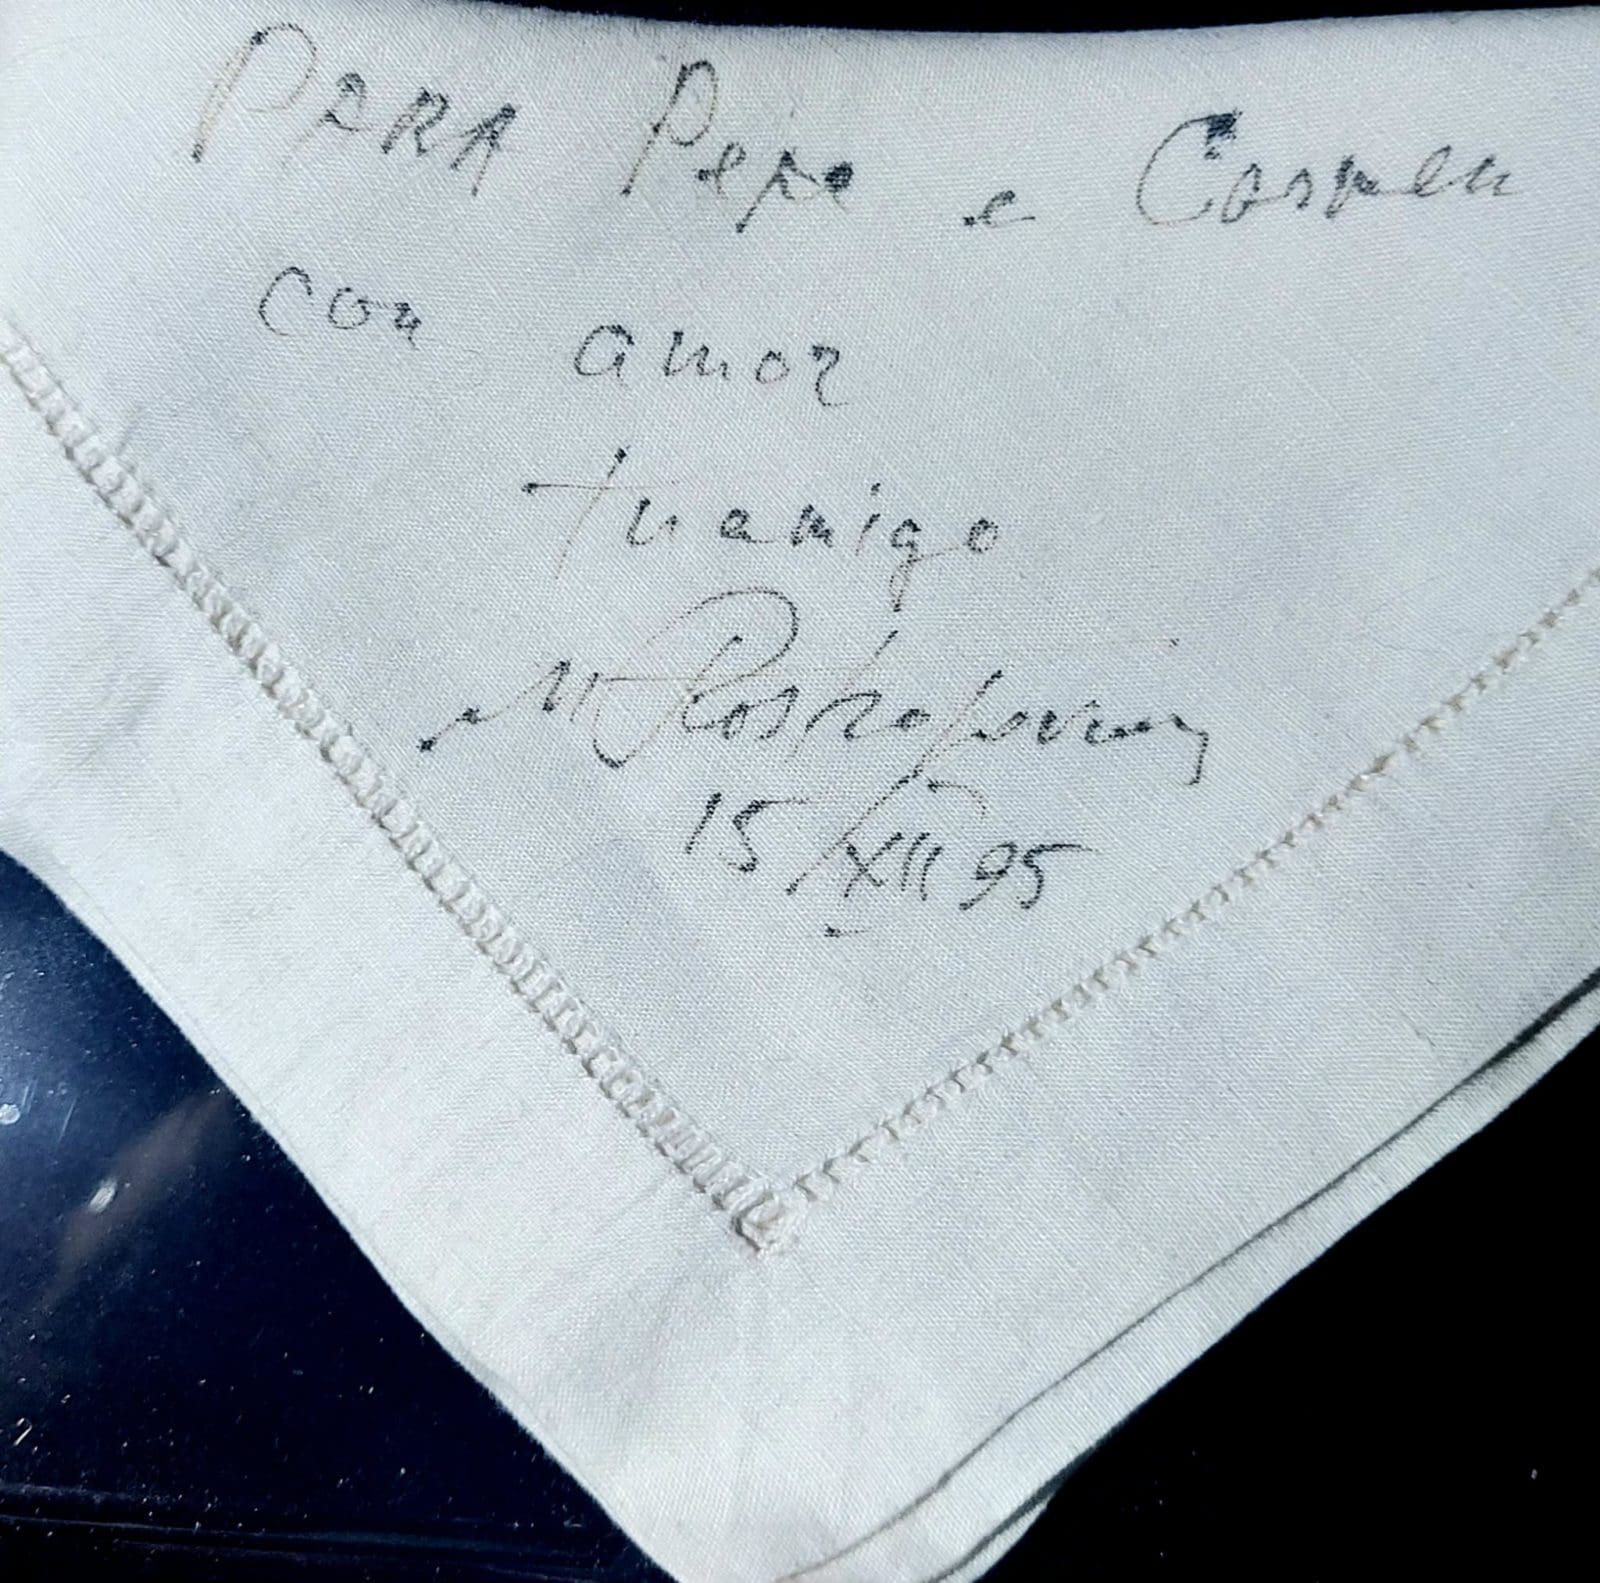 PARA Pepe e Carmen
con amor
tu amigo
M Rostropovich
15/XII 95